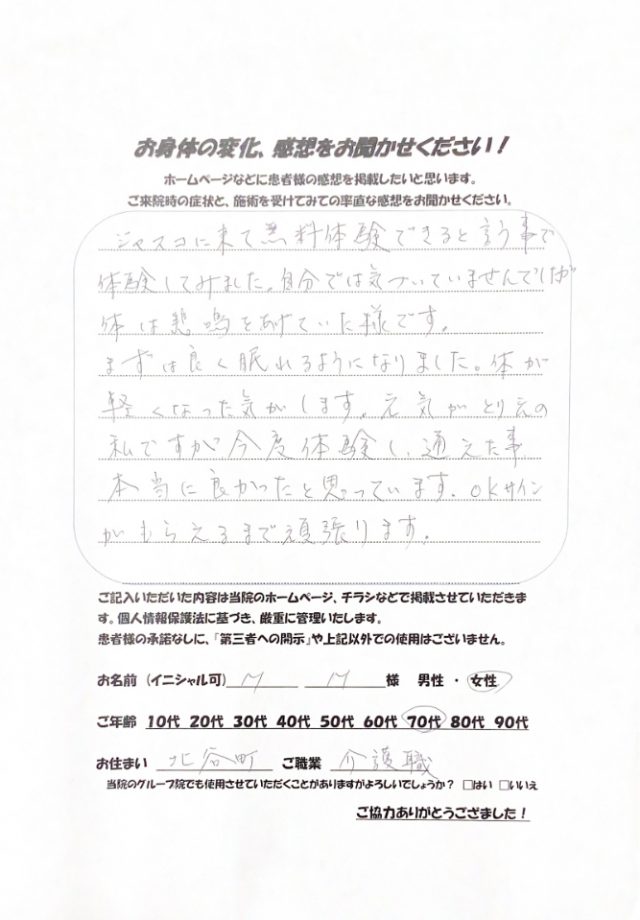 お身体の変化、感想をお聞かせください！
ホームページなどに患者様の感想を掲載したいと思います。
ご来院時の症状と、施術を受けてみての率直な感想をお聞かせください。
ジャスコに来て無料体験できると言う事で
体験してみました。自分では気づいていませんでしたが
体は悲鳴をあげていた様です。
まずは良く眠れるようになりました。体が
軽くなった気がします。元気がとりえの
私ですが今度体験し、通えた事
本当に良かったと思っています。OKサイン
がもらえるまで頑張ります。
ご記入いただいた内容は当院のホームページ、チラシなどで掲載させていただきま
す。個人情報保護法に基づき、厳重に管理いたします。
患者様の承諾なしに、「第三者への開示」や上記以外での使用はございません。
お名前（イニシャル可） M M 様 男性 ・ 女性
ご年齢 10代 20代 30代 40代 50代 60代 70代 80代 90代
お住まい 北谷町 ご職業 介護職
当院のグループ院でも使用させていただくことがありますがよろしいでしょうか？ □はい □いいえ
ご協力ありがとうござました！